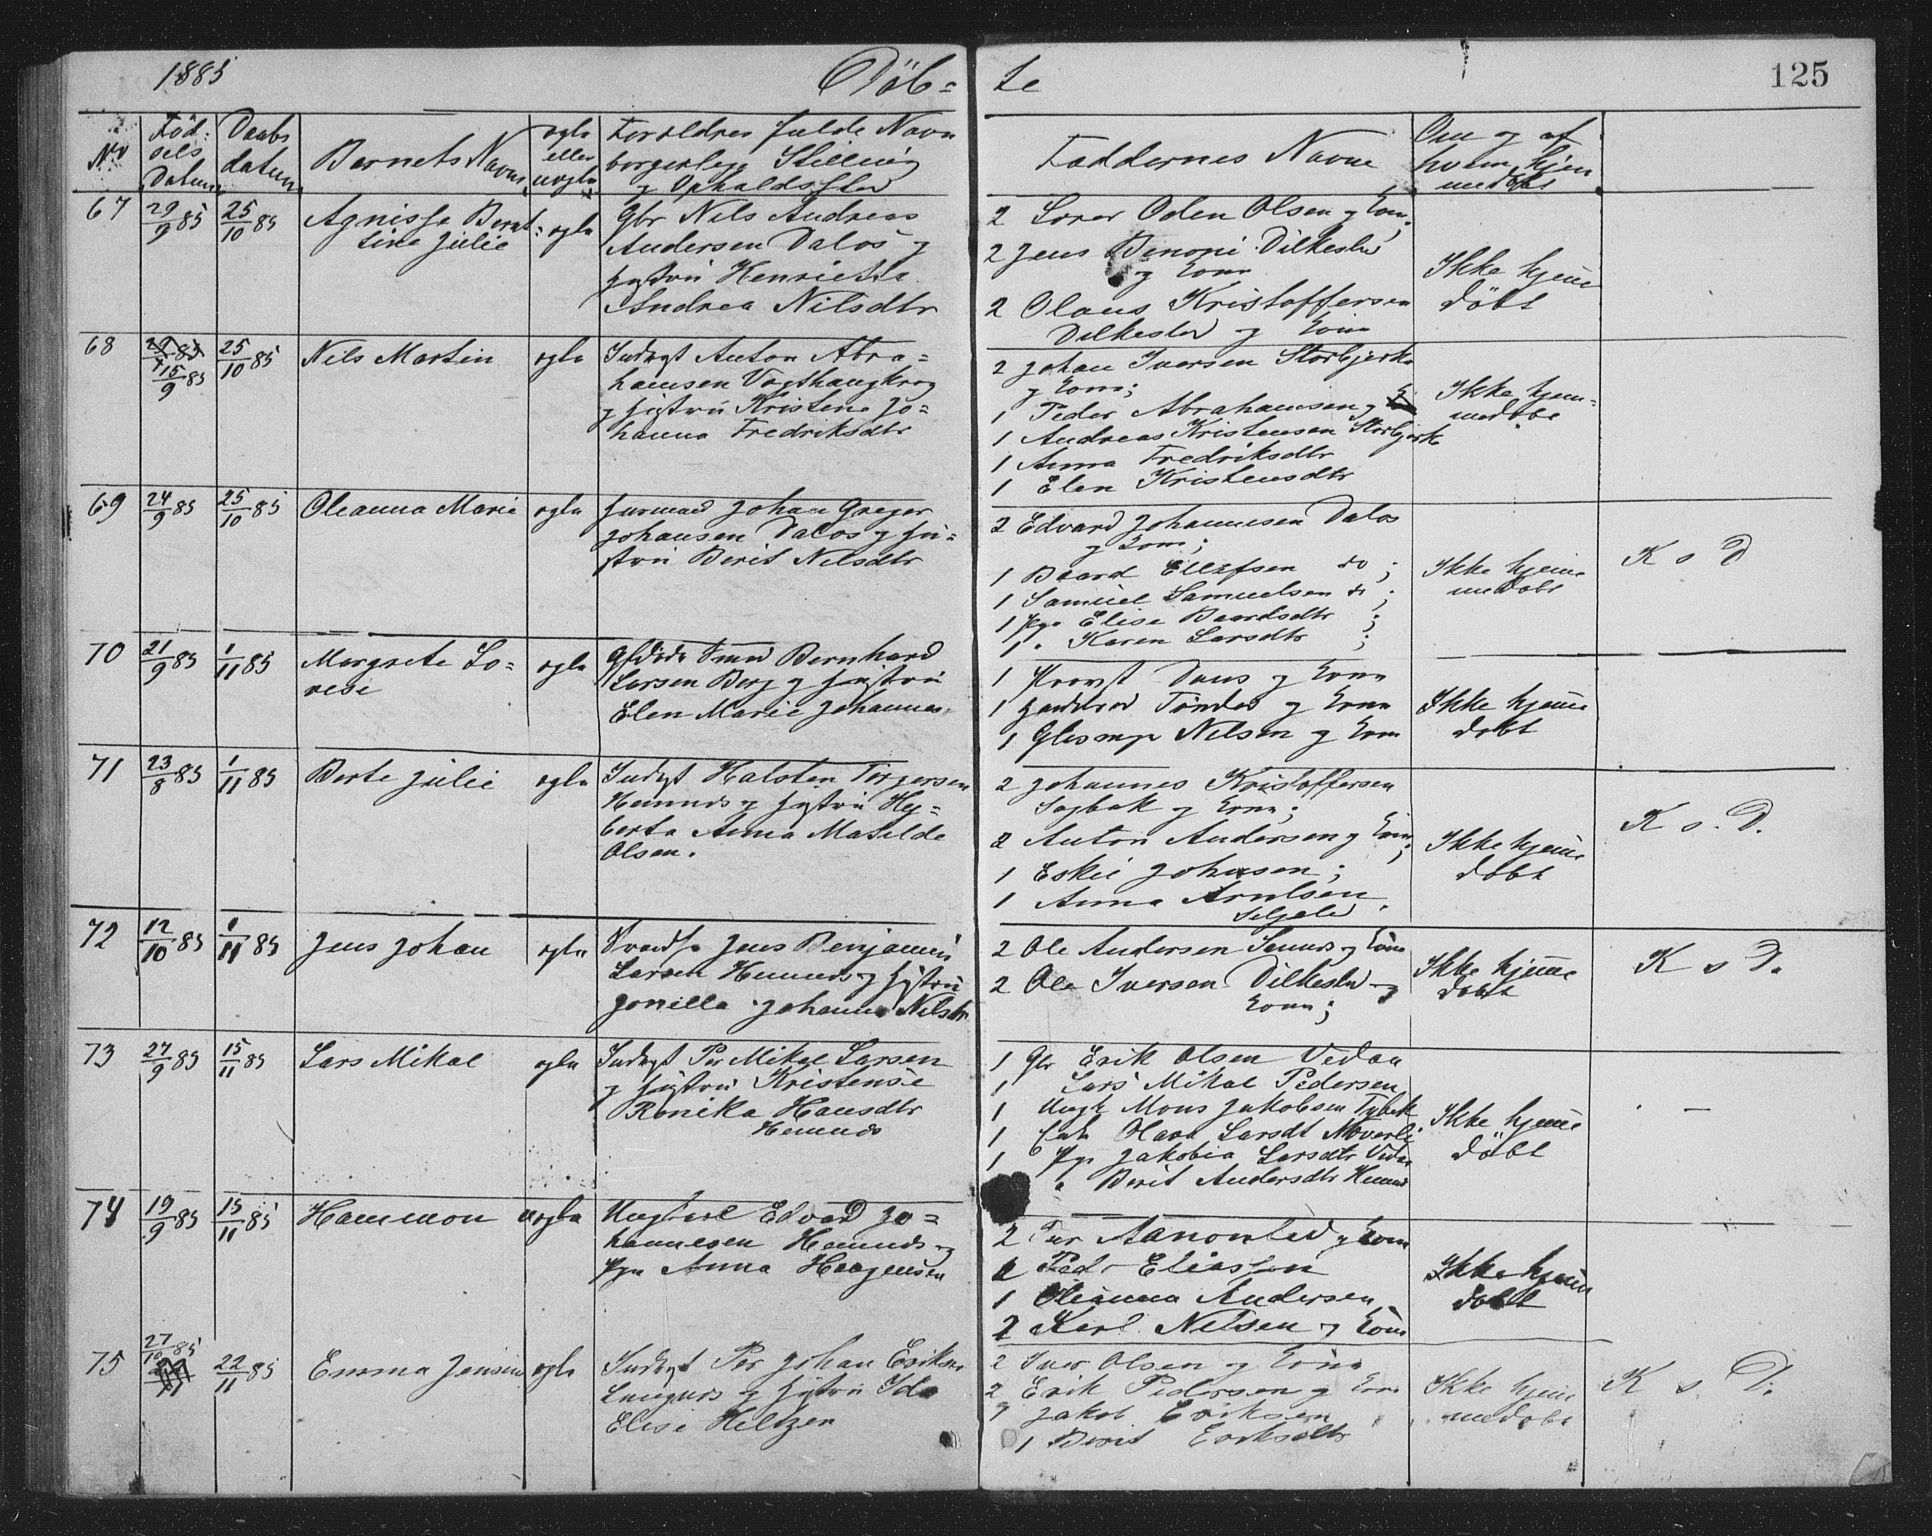 1885 Döb= te 125
No Födsels Datum Daabs datum Barnets Navn ogte eller uegte Foreldres fulde Navn borgerlige Stilling og Opholdssted Faddernes Navne Om og af hvem hjemmedöbt
67 29/9 85 25/10 85 Agnisse Bernt= ogte Gbr Nils Andreas
tine Julie Andersen Dalos og
Henrietta
Andrea Nilsdtr
2 Lorer Oden Olsen og Kone;
2 Jens Benoni Dilkestad
og Kone
2 Olaus Kristoffersen
Dilkestad og Kone
Ikke hjemme
döbt
68 15/9 85 25/10 85 Nils Martin ogte Inderst Anton Abra=
hamsen Vogthaugkrog
og Hustru Kristene Jo=
hanna Fredriksdtr
2 Johan Iversen Storbjerk
og Kone;
1 Peder Abrahamsen
1 Andreas Kristensen Storbjerk
1 Anna Fredriksdtr
1 Elen Kristensdtr
Ikke hjem=
medöbt
69 24/9 85 25/10 85 Oleanna Marie ogte Husmand Johan Greger
Johansen Dalos og Hu=
stru Berit Nilsdtr
2 Edvard Johannesen Dalos
og Kone;
1 Baard Ellefsen do;
1 Samuel Samuelsen do;
1 Pge Elise Baardsdtr;
1 " Karen Larsdtr;
Ikke hjemme
medöbt
K s D
70 21/9 85 1/11 85 Margrete Lo= ogte Bernhard
vise Larsen Berg og Hustru
Elen Marie Johannes.
1 Provst Daus og Kone
1 Tönder og Kone
1 Nelsen og Kone
Ikke hjemme
döbt
71 23/8 85 1/11 85 Berte Julie ogte Inderst Halsten Torgersen
Hemnes og Hustru Hy=
berta Anna Matilde
Olsen.
2 Johannes Kristoffersen
Sagbak og Kone;
2 Anton Andersen og Kone;
1 Eskil Johnsen;
1 Anna Arntsen.
Seljelid
Ikke hjemme
döbt
K s. D.
72 12/10 85 1/11 85 Jens Johan ogte Strands. Jens Benjamin
Larsen Hemnes og Hustru
Jonilla Johanna Nilsdtr
2 Ole Andersen Sunds og Kone
2 Ole Iversen Dilkestad og
Kone;
Ikke hjemme
döbt
K s D.
73 27/9 85 15/11 85 Lars Mikal ogte Inderst Per Mikal Larsen
og Hustru Kristense
Renika Hansdtr
Hemnes
1 Gbr Erik Olsen Vedaa
1 Lars Mikal Pedersen
1 Ungk Mons Jakobsen Tybek
1 Olava Larsdt
1 Pge Jakobia Larsdtr Vedaa
" Berit Andersdtr Hemnes
Ikke hjemme
döbt
–
74 19/9 85 15/11 85 Hammon uogte Ungkarl Edvard Jo=
hannesen Hemnes og
Pge Anna Haagensen
2 Per Aanonlid og Kone
1 Peder Eliassen
1 Oleanna Andersen
2 Karl Nilsen og Kone
Ikke hjemme
döbt
75 27/10 85 22/11 85 Emma Jensine ogte Inderst Per Johan Eriksen
og Hustru Ida
Elise Heltzen
2 Iver Olsen og Kone
2 Erik Pedersen og Kone
1 Jakob Eriksen
1 Berit Eriksdtr
Ikke hjem
medöbt
K s. D.